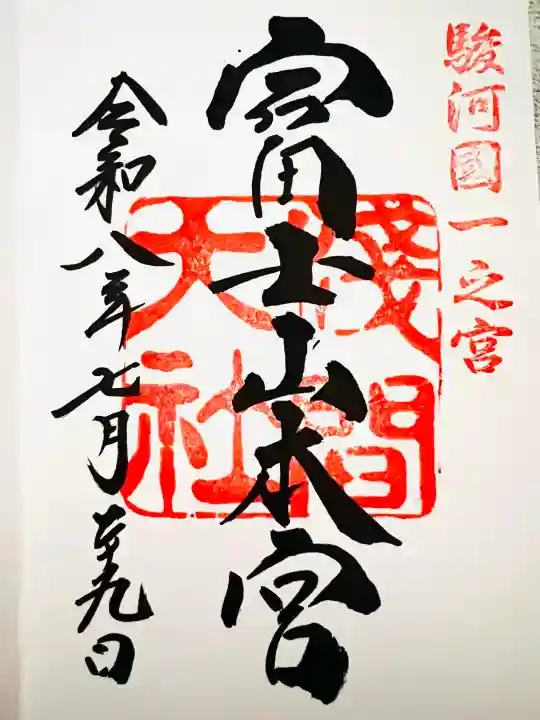 駿河國一之宮
富士山本宮
淺間大社
令和八年七月二十九日